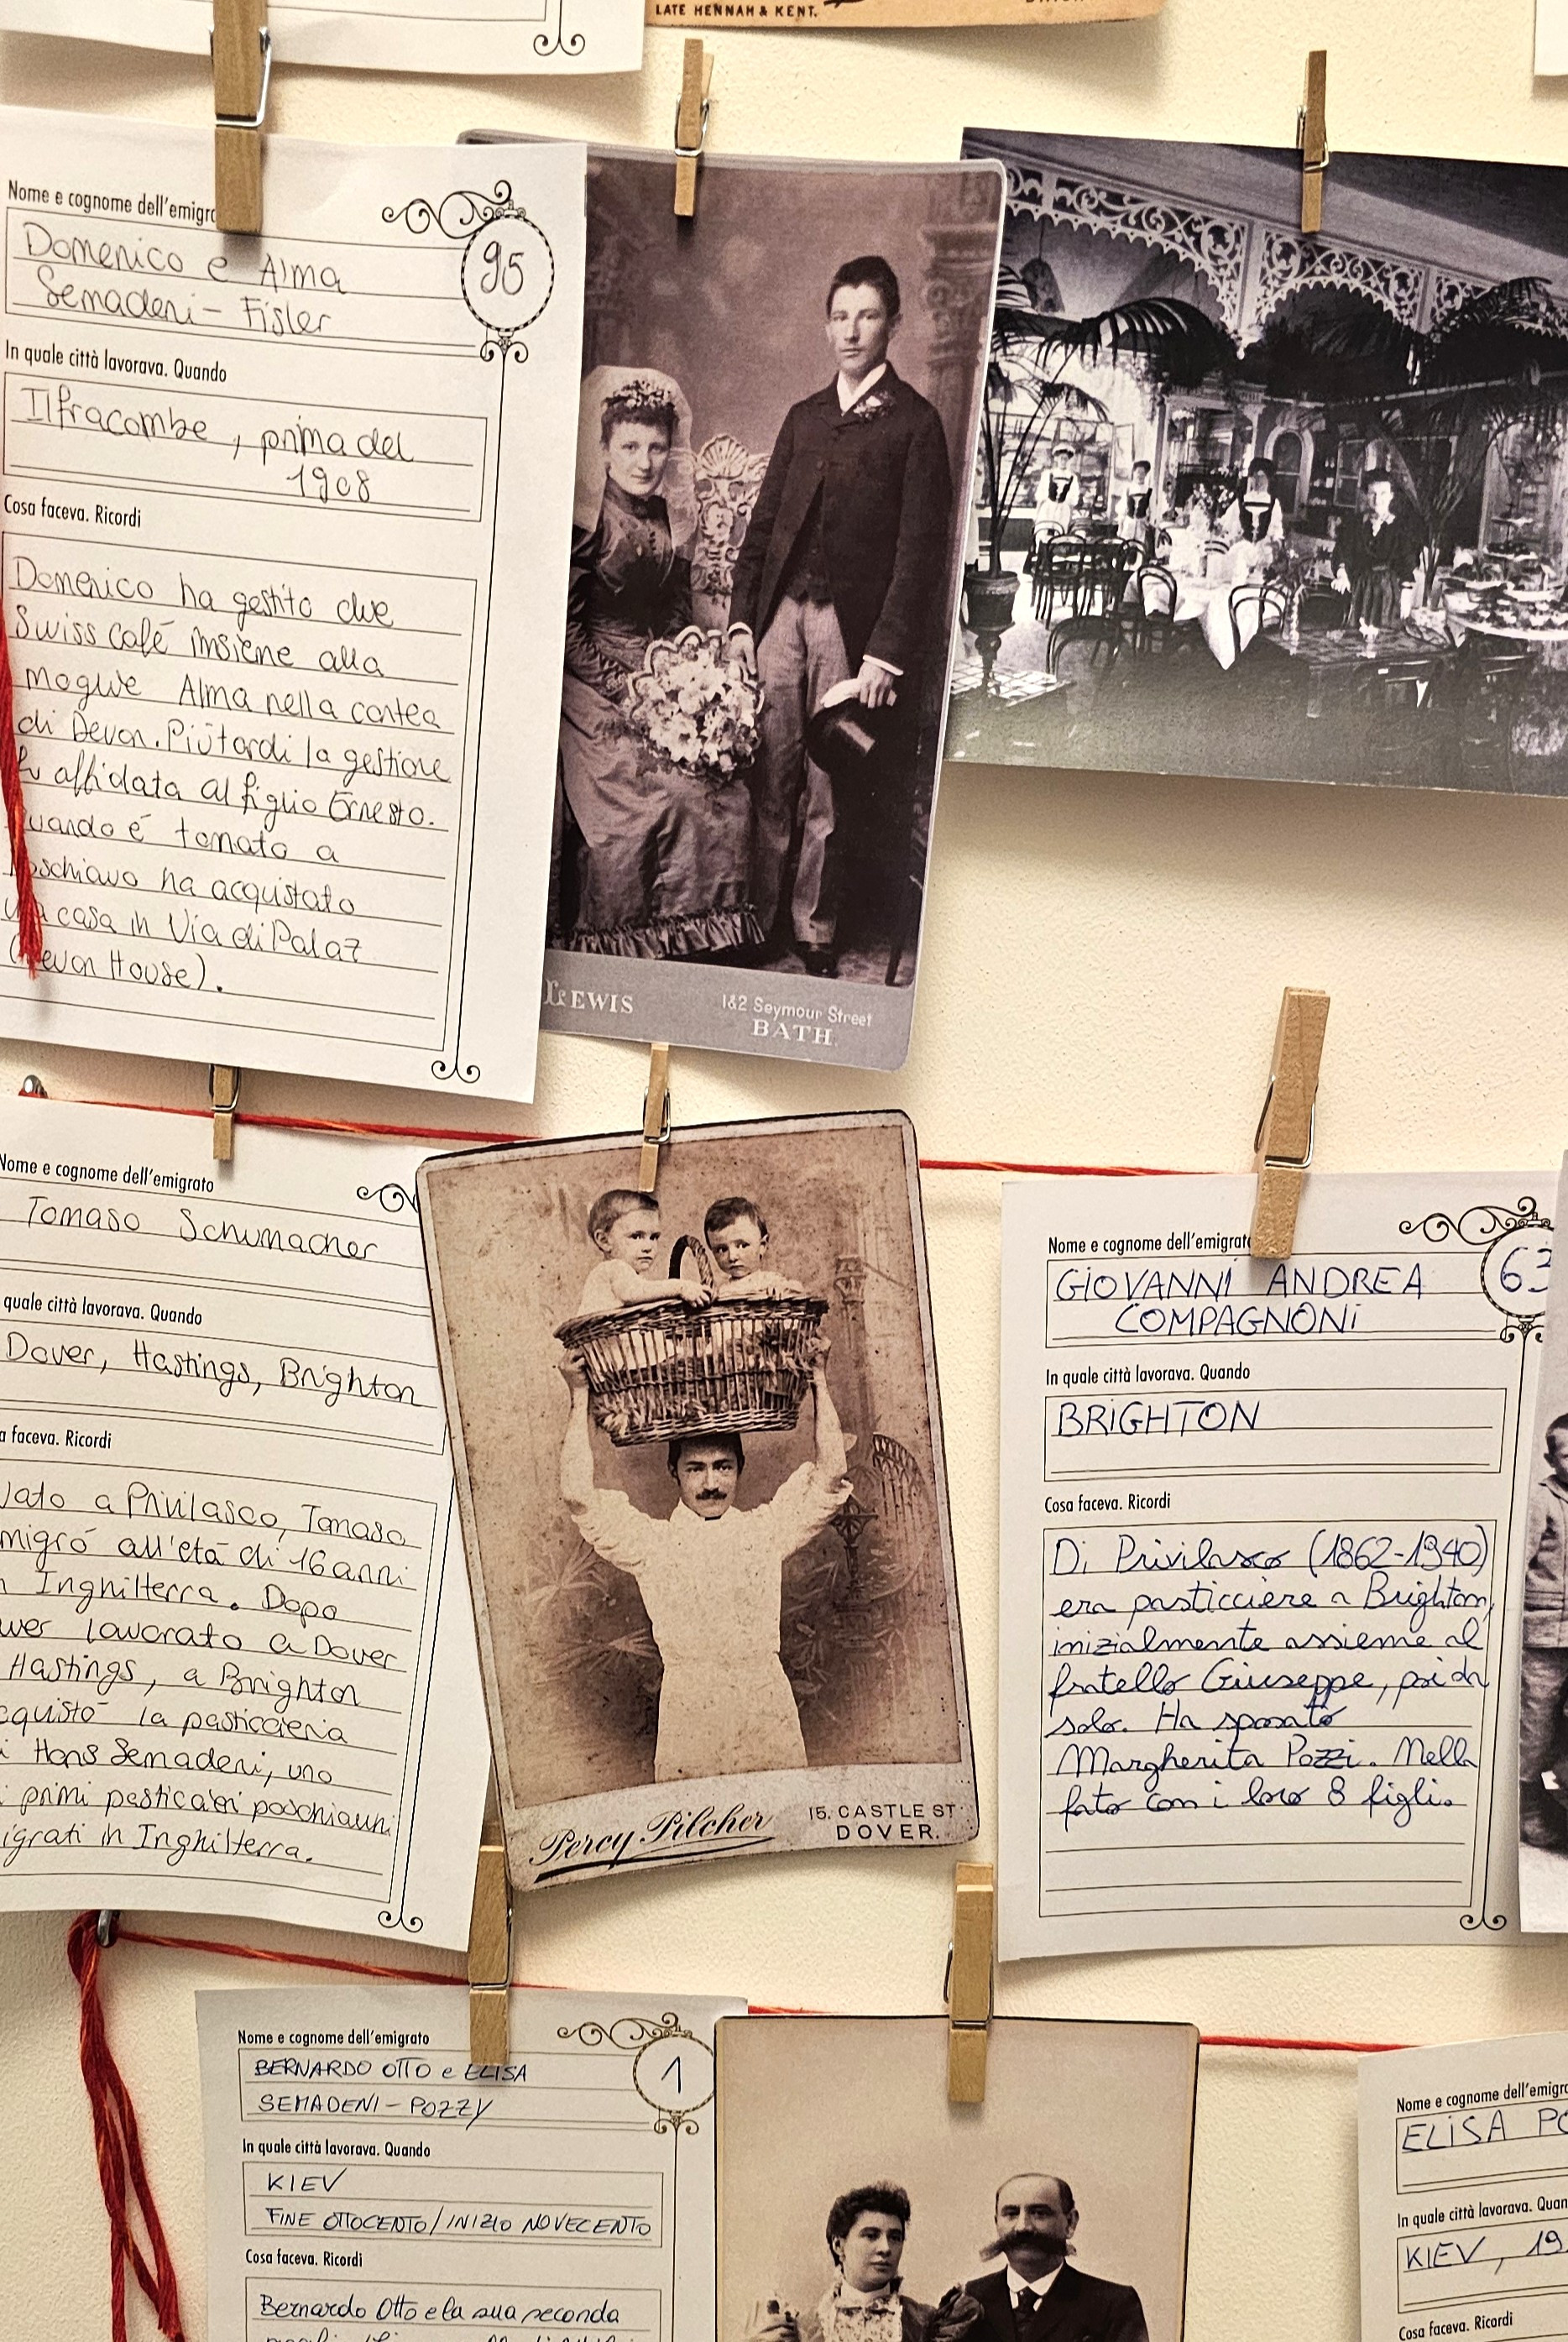 LATE HENNAH & KENT.
Nome e cognome dell'emigrato
95
Domenico e Alma
Semadeni - Fisler
In quale città lavorava. Quando
Ilfracombe, prima del
1908
Cosa faceva. Ricordi
Domenico ha gestito due
Swiss café insieme alla
moglie Alma nella contea
di Devon. Più tardi la gestione
fu affidata al figlio Ernesto.
Quando é tornato a
Poschiavo ha acquistato
una casa in Via di Palaz
(Devon House).
LEWIS
1&2 Seymour Street
BATH.
Nome e cognome dell'emigrato
Tomaso Schumacher
quale città lavorava. Quando
Dover, Hastings, Brighton
faceva. Ricordi
Nato a Privilasco, Tomaso
emigró all'etá di 16 anni
in Inghilterra. Dopo
aver lavorato a Dover
Hastings, a Brighton
acquistó la pasticceria
di Hans Semadeni, uno
primi pasticceri poschiavini
emigrati in Inghilterra.
Percy Pilcher
15. CASTLE ST.
DOVER.
Nome e cognome dell'emigrato
63
GIOVANNI ANDREA
COMPAGNONI
In quale città lavorava. Quando
BRIGHTON
Cosa faceva. Ricordi
Di Privilasco (1862-1940)
era pasticciere a Brighton,
inizialmente assieme al
fratello Giuseppe, poi da
solo. Ha sposato
Margherita Pozzi. Nella
foto con i loro 8 figli.
Nome e cognome dell'emigrato
1
BERNARDO OTTO e ELISA
SEMADENI - POZZY
In quale città lavorava. Quando
KIEV
FINE OTTOCENTO / INIZIO NOVECENTO
Cosa faceva. Ricordi
Bernardo Otto e la sua seconda
Nome e cognome dell'emigrato
ELISA PO
In quale città lavorava. Quan
KIEV, 19
Cosa faceva. Ricordi